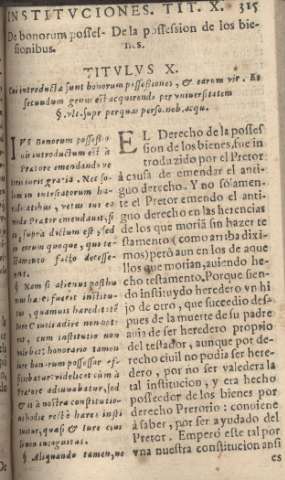 INSTITVCIONES. TIT. X. 315
De bonorum posses-
sionibus.
De la possession de los bie-
nes.
TITVLVS X.
Cui introducta sunt bonorum possessiones, & earum vir. Et
secundum genus est acquirendi per vniuersitatem
§. vlt. supr per quas perso. nob. acqu.
IVS bonorum possessio-
nis introductum est à
Pretore emendandi ve
teris iuris gratia. Nec so-
lum in intestatorum hæ-
reditatibus, vetus ius eo
modo Prætor emendauit, si-
cut suprà dictum est, sed
in eorum quoque, qui te-
stamento facto decesse-
rint.
§ Nam si alienus posthu
mus hæres fuerit institu-
tus, quamuis hæreditatē
iure ciuili adire non pot-
erat, cum institutio non
valebat: honorario tamen
iure bonorum possessor ef-
ficiebatur: videlicet cùm à
Prætore adiuuabatur, sed
& is à nostra constitutio-
ne hodie recte hæres insti
tuitur, quasi & iure ciui
li non incognitus.
§ Aliquando tamen, ne
EL Derecho de la posses
sion de los bienes, fue in
troduzido por el Pretor
à causa de emendar el anti-
guo derecho. Y no solamen-
te el Pretor emendo el anti-
guo derecho en las herencias
de los que moriã sin hazer te
stamento (como arriba dixi-
mos) però aun en los de aque
llos que morian, auiendo he-
cho testamento. Porque sien-
do instituydo heredero vn hi
jo de otro, que sucedio des-
pues de la muerte de su padre
auia de ser heredero proprio
del testador, aunque por de-
recho ciuil no podia ser here-
dero, por no ser valedera la
tal institucion, y era hecho
possessor de los bienes por
derecho Pretorio: conuiene
à saber, por ser ayudado del
Pretor. Emperò este tal por
vna nuestra constitucion ansi
es